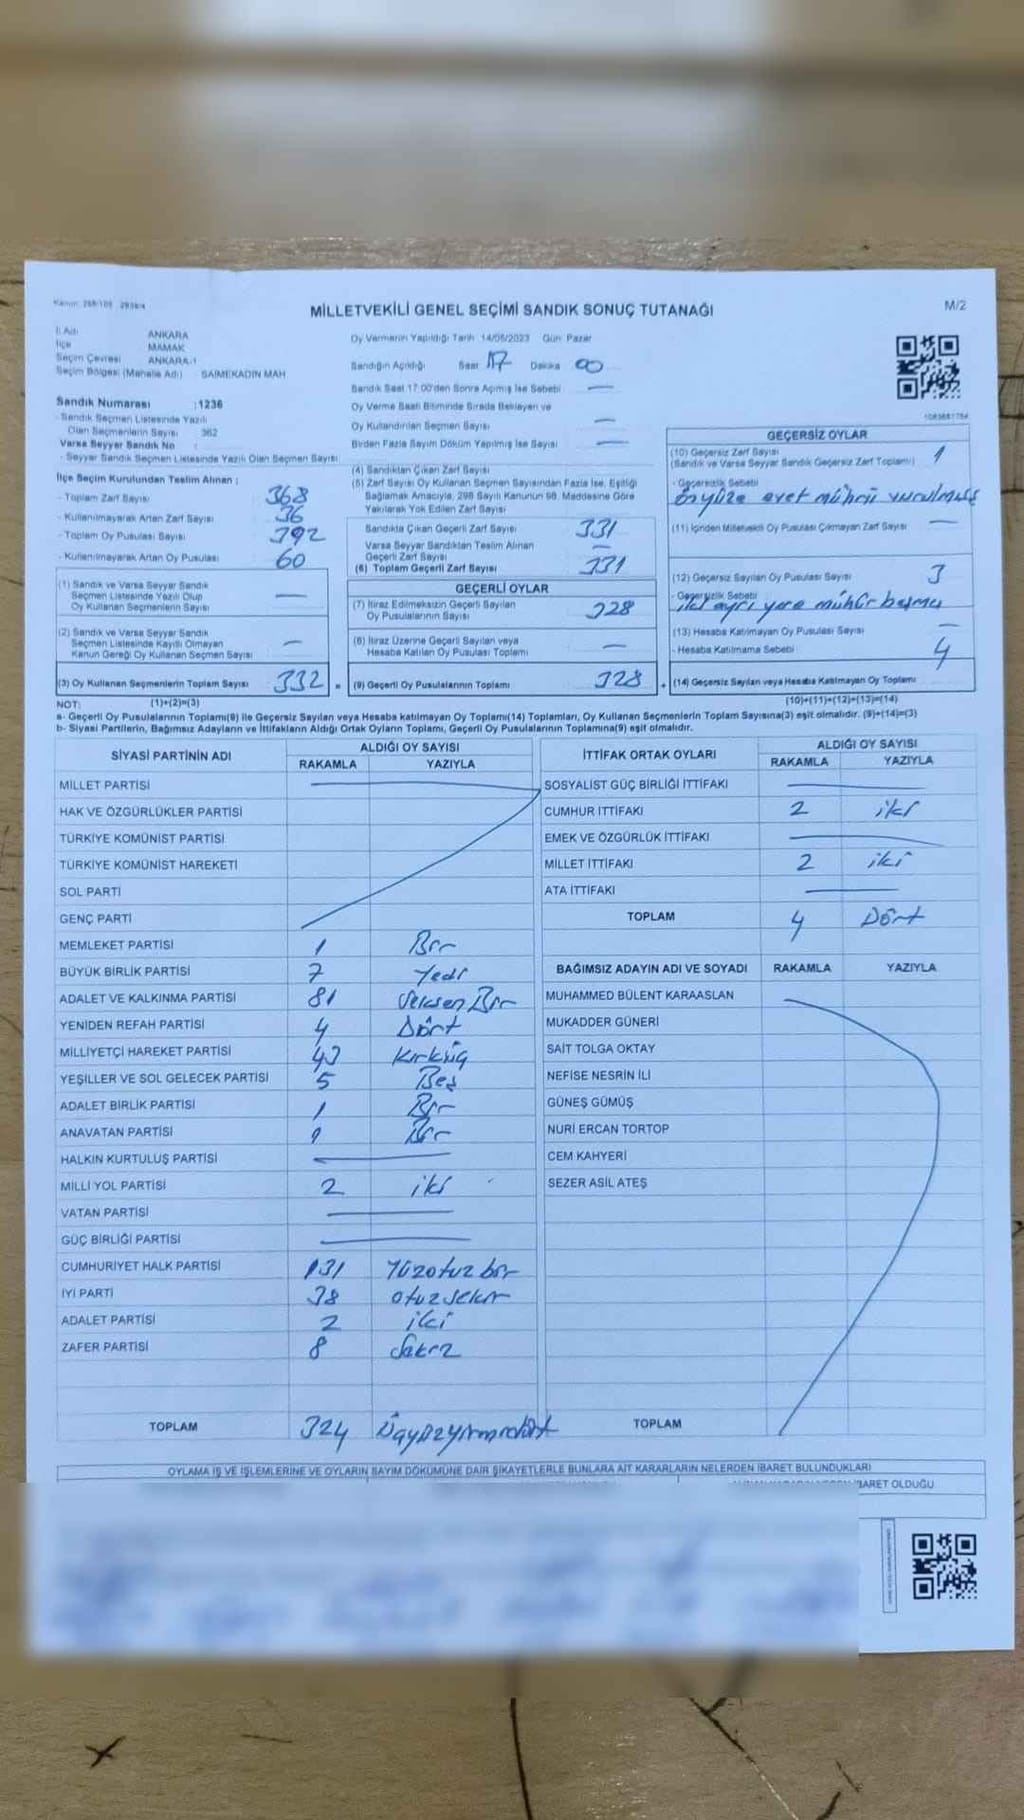 MİLLETVEKİLİ GENEL SEÇİMİ SANDIK SONUÇ TUTANAĞI
M/2
İl Adı ANKARA
İlçe MAMAK
Seçim Çevresi ANKARA-1
Seçim Bölgesi (Mahalle Adı) SAİMEKADIN MAH
Sandık Numarası :1236
- Sandık Seçmen Listesinde Yazılı
Olan Seçmenlerin Sayısı 362
Varsa Seyyar Sandık No :
- Seyyar Sandık Seçmen Listesinde Yazılı Olan Seçmen Sayısı
İlçe Seçim Kurulundan Teslim Alınan :
- Toplam Zarf Sayısı 368
- Kullanılmayarak Artan Zarf Sayısı 36
- Toplam Oy Pusulası Sayısı 392
- Kullanılmayarak Artan Oy Pusulası 60
(1) Sandık ve Varsa Seyyar Sandık
Seçmen Listesinde Yazılı Olup
Oy Kullanan Seçmenlerin Sayısı —
(2) Sandık ve Varsa Seyyar Sandık
Seçmen Listesinde Kayıtlı Olmayan
Kanun Gereği Oy Kullanan Seçmen Sayısı —
(3) Oy Kullanan Seçmenlerin Toplam Sayısı 332 =
Oy Vermenin Yapıldığı Tarih 14/05/2023 Gün Pazar
Sandığın Açıldığı Saat 17 Dakika 00
Sandık Saat 17:00'den Sonra Açılmış İse Sebebi —
Oy Verme Saati Bitiminde Sırada Bekleyen ve
Oy Kullandırılan Seçmen Sayısı —
Birden Fazla Sayım Döküm Yapılmış İse Sayısı —
(4) Sandıktan Çıkan Zarf Sayısı
(5) Zarf Sayısı Oy Kullanan Seçmen Sayısından Fazla İse, Eşitliği
Bağlamak Amacıyla, 298 Sayılı Kanunun 98. Maddesine Göre
Yakılarak Yok Edilen Zarf Sayısı
Sandıkta Çıkan Geçerli Zarf Sayısı 331
Varsa Seyyar Sandıktan Teslim Alınan
Geçerli Zarf Sayısı —
(6) Toplam Geçerli Zarf Sayısı 331
GEÇERLİ OYLAR
(7) İtiraz Edilmeksizin Geçerli Sayılan
Oy Pusulalarının Sayısı 328
(8) İtiraz Üzerine Geçerli Sayılan veya
Hesaba Katılan Oy Pusulası Toplamı —
(9) Geçerli Oy Pusulalarının Toplamı 328 +
1083681754
GEÇERSİZ OYLAR
(10) Geçersiz Zarf Sayısı 1
(Sandık ve Varsa Seyyar Sandık Geçersiz Zarf Toplamı)
- Geçersizlik Sebebi
Önyüze evet mührü vurulmuş
(11) İçinden Milletvekili Oy Pusulası Çıkmayan Zarf Sayısı —
(12) Geçersiz Sayılan Oy Pusulası Sayısı 3
- Geçersizlik Sebebi
iki ayrı yere mühür basma
(13) Hesaba Katılmayan Oy Pusulası Sayısı —
- Hesaba Katılmama Sebebi
(14) Geçersiz Sayılan veya Hesaba Katılmayan Oy Toplamı 4
NOT: (1)+(2)=(3) (10)+(11)+(12)+(13)=(14)
a- Geçerli Oy Pusulalarının Toplamı(9) ile Geçersiz Sayılan veya Hesaba katılmayan Oy Toplamı(14) Toplamları, Oy Kullanan Seçmenlerin Toplam Sayısına(3) eşit olmalıdır. (9)+(14)=(3)
b- Siyasi Partilerin, Bağımsız Adayların ve İttifakların Aldığı Ortak Oyların Toplamı, Geçerli Oy Pusulalarının Toplamına(9) eşit olmalıdır.
SİYASİ PARTİNİN ADI ALDIĞI OY SAYISI
RAKAMLA YAZIYLA
MİLLET PARTİSİ
HAK VE ÖZGÜRLÜKLER PARTİSİ
TÜRKİYE KOMÜNİST PARTİSİ
TÜRKİYE KOMÜNİST HAREKETİ
SOL PARTİ
GENÇ PARTİ
MEMLEKET PARTİSİ 1 Bir
BÜYÜK BİRLİK PARTİSİ 7 Yedi
ADALET VE KALKINMA PARTİSİ 81 Seksen Bir
YENİDEN REFAH PARTİSİ 4 Dört
MİLLİYETÇİ HAREKET PARTİSİ 43 Kırküç
YEŞİLLER VE SOL GELECEK PARTİSİ 5 Beş
ADALET BİRLİK PARTİSİ 1 Bir
ANAVATAN PARTİSİ 1 Bir
HALKIN KURTULUŞ PARTİSİ —
MİLLİ YOL PARTİSİ 2 iki
VATAN PARTİSİ —
GÜÇ BİRLİĞİ PARTİSİ —
CUMHURİYET HALK PARTİSİ 131 Yüzotuz bir
İYİ PARTİ 38 otuzsekiz
ADALET PARTİSİ 2 iki
ZAFER PARTİSİ 8 Sekiz
TOPLAM 324 Üçyüzyirmidört
İTTİFAK ORTAK OYLARI ALDIĞI OY SAYISI
RAKAMLA YAZIYLA
SOSYALİST GÜÇ BİRLİĞİ İTTİFAKI —
CUMHUR İTTİFAKI 2 iki
EMEK VE ÖZGÜRLÜK İTTİFAKI —
MİLLET İTTİFAKI 2 iki
ATA İTTİFAKI —
TOPLAM 4 Dört
BAĞIMSIZ ADAYIN ADI VE SOYADI RAKAMLA YAZIYLA
MUHAMMED BÜLENT KARAASLAN
MUKADDER GÜNERİ
SAİT TOLGA OKTAY
NEFİSE NESRİN İLİ
GÜNEŞ GÜMÜŞ
NURİ ERCAN TORTOP
CEM KAHYERİ
SEZER ASİL ATEŞ
TOPLAM
OYLAMA İŞ VE İŞLEMLERİNE VE OYLARIN SAYIM DÖKÜMÜNE DAİR ŞİKAYETLERLE BUNLARA AİT KARARLARIN NELERDEN İBARET BULUNDUKLARI
İBARET OLDUĞU